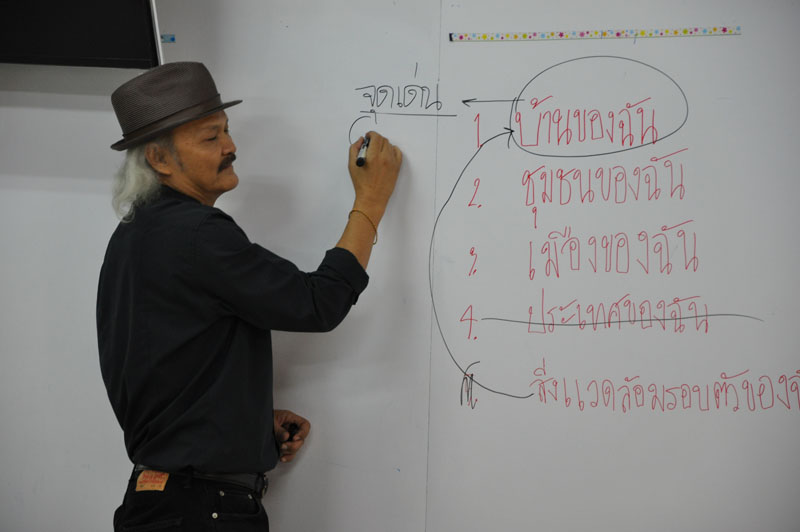 จุดเด่น
1. บ้านของฉัน
2. ชุมชนของฉัน
3. เมืองของฉัน
4. ประเทศของฉัน
สิ่งแวดล้อมรอบตัวของ